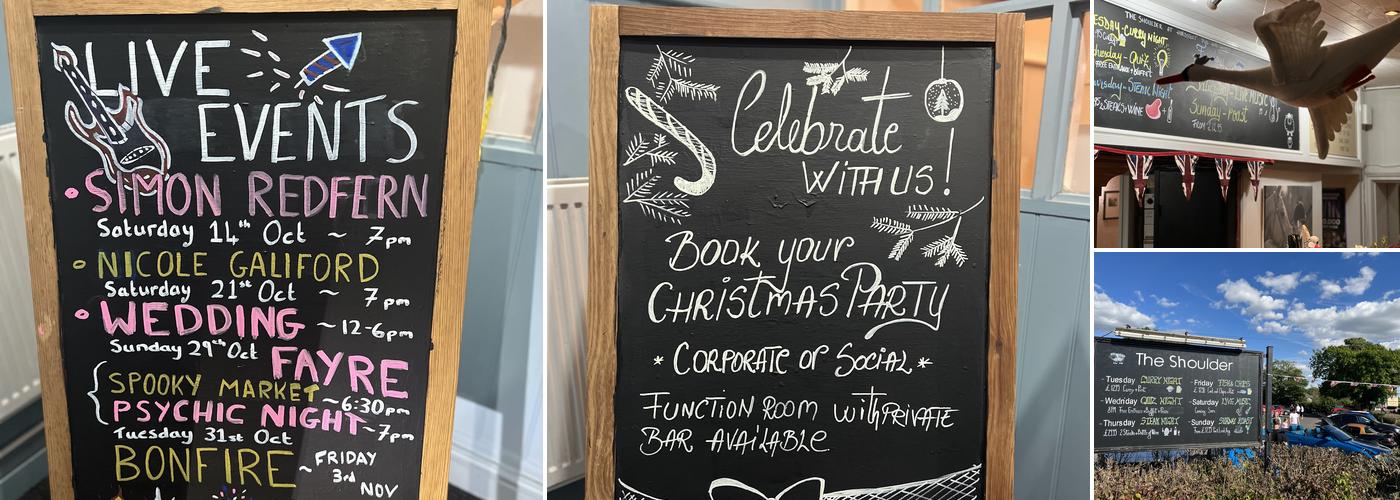 LIVE
EVENTS
SIMON REDFERN
Saturday 14th Oct ~ 7pm
NICOLE GALIFORD
Saturday 21st Oct ~ 7pm
WEDDING ~12-6pm
Sunday 29th Oct FAYRE
SPOOKY MARKET ~6:30pm
PSYCHIC NIGHT ~7pm
Tuesday 31st Oct
BONFIRE ~ FRIDAY
3rd
NOV
Celebrate
WITH US!
BOOK your
CHRISTMAS PARTY
* CORPORATE OR SOCIAL *
FUNCTION ROOM with PRIVATE
BAR AVAILABLE
THE SHOULDER
CURRY NIGHT
QUIZ
FREE ENTRANCE + BUFFET
STEAK NIGHT
STEAKS + WINE
LIVE MUSIC
Sunday - roast
The Shoulder
Tuesday CURRY NIGHT
Wednesday QUIZ NIGHT
Thursday STEAK NIGHT
Friday FISH & CHIPS
Saturday LIVE MUSIC
Sunday SUNDAY ROAST